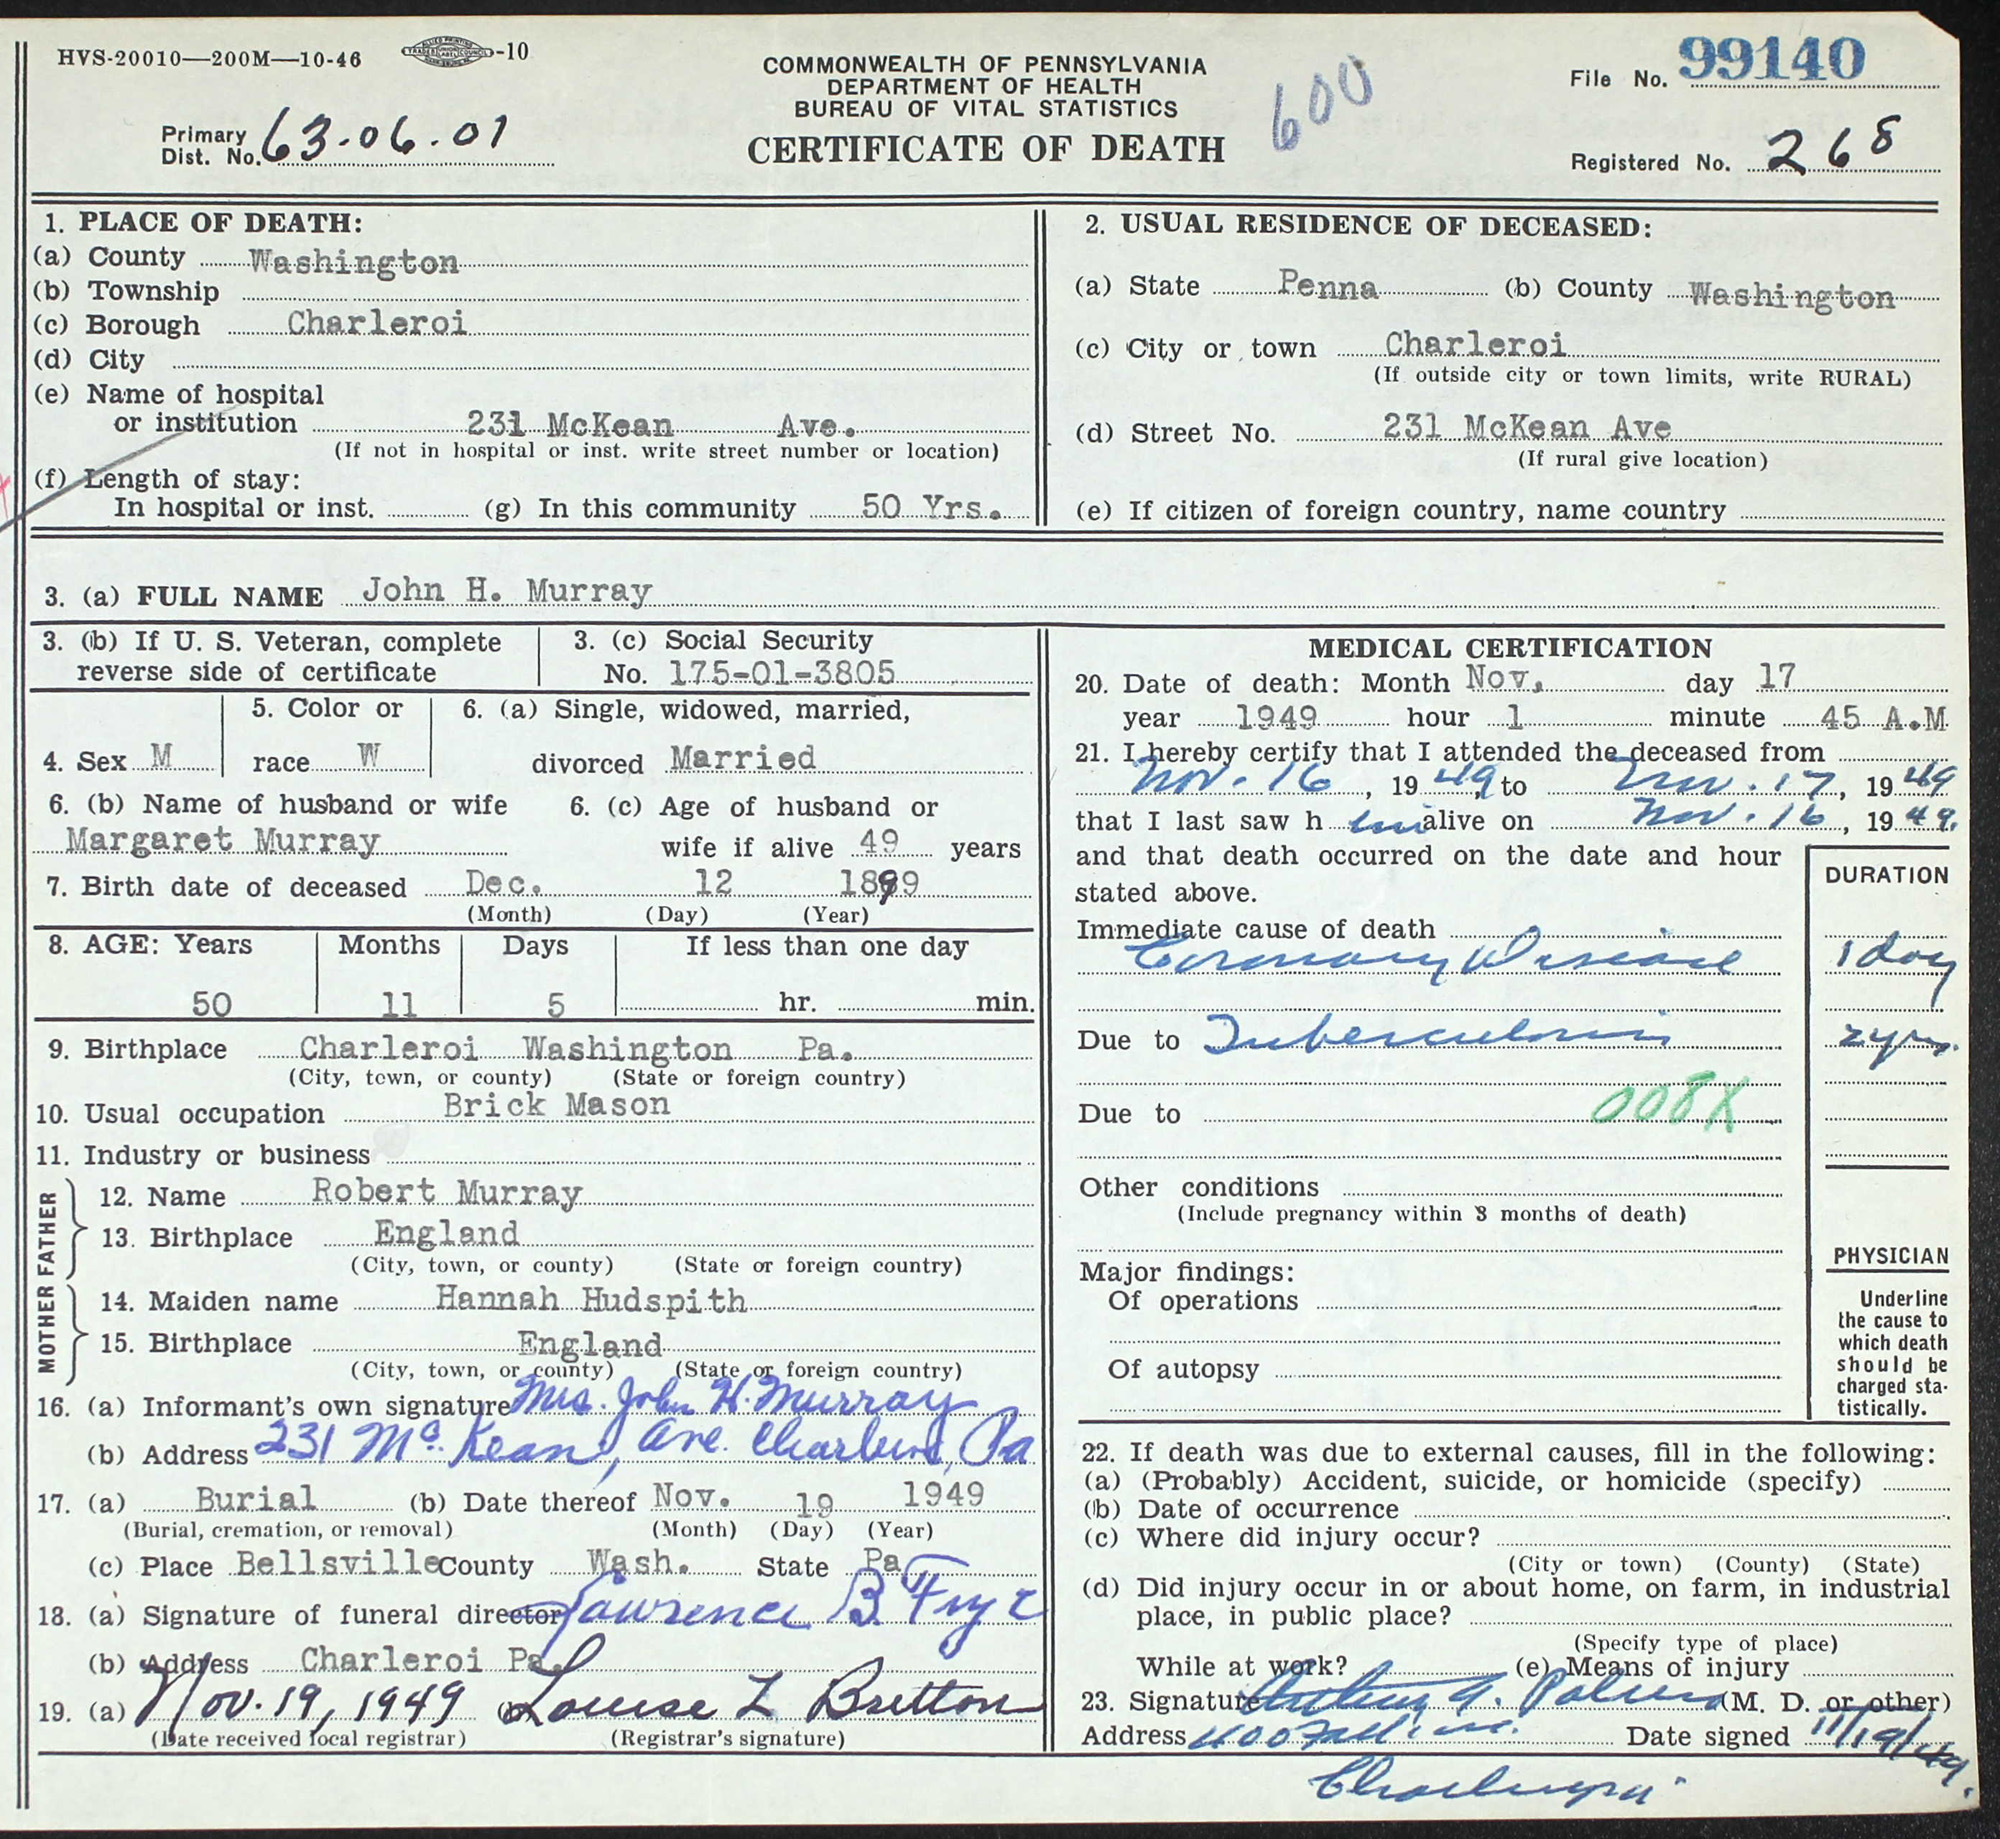 HVS-20010—200M—10-46 -10
COMMONWEALTH OF PENNSYLVANIA
DEPARTMENT OF HEALTH
BUREAU OF VITAL STATISTICS
CERTIFICATE OF DEATH
600
File No. 99140
Primary
Dist. No. 63.06.01
Registered No. 268
1. PLACE OF DEATH:
(a) County Washington
(b) Township
(c) Borough Charleroi
(d) City
(e) Name of hospital
or institution 231 McKean Ave.
(If not in hospital or inst. write street number or location)
(f) Length of stay:
In hospital or inst. (g) In this community 50 Yrs.
2. USUAL RESIDENCE OF DECEASED:
(a) State Penna (b) County Washington
(c) City or town Charleroi
(If outside city or town limits, write RURAL)
(d) Street No. 231 McKean Ave
(If rural give location)
(e) If citizen of foreign country, name country
3. (a) FULL NAME John H. Murray
3. (b) If U. S. Veteran, complete
reverse side of certificate
3. (c) Social Security
No. 175-01-3805
4. Sex M
5. Color or
race W
6. (a) Single, widowed, married,
divorced Married
6. (b) Name of husband or wife
Margaret Murray
6. (c) Age of husband or
wife if alive 49 years
7. Birth date of deceased Dec. 12 1899
(Month) (Day) (Year)
8. AGE: Years Months Days If less than one day
50 11 5 hr. min.
9. Birthplace Charleroi Washington Pa.
(City, town, or county) (State or foreign country)
10. Usual occupation Brick Mason
11. Industry or business
FATHER
12. Name Robert Murray
13. Birthplace England
(City, town, or county) (State or foreign country)
MOTHER
14. Maiden name Hannah Hudspith
15. Birthplace England
(City, town, or county) (State or foreign country)
16. (a) Informant's own signature Mrs. John H. Murray
(b) Address 231 Mc. Kean, Ave. Charleroi, Pa
17. (a) Burial (b) Date thereof Nov. 19 1949
(Burial, cremation, or removal) (Month) (Day) (Year)
(c) Place Bellsville County Wash. State Pa
18. (a) Signature of funeral director Lawrence B. Frye
(b) Address Charleroi Pa.
19. (a) Nov. 19, 1949 (b) Louise L Bretton
(Date received local registrar) (Registrar's signature)
MEDICAL CERTIFICATION
20. Date of death: Month Nov. day 17
year 1949 hour 1 minute 45 A.M
21. I hereby certify that I attended the deceased from
Nov. 16, 1949, to Nov. 17, 1949
that I last saw h im alive on Nov. 16, 1949.
and that death occurred on the date and hour
stated above.
DURATION
Immediate cause of death
Coronary Disease 1 day
Due to Tuberculosis 2 yrs.
008X
Due to
Other conditions
(Include pregnancy within 3 months of death)
Major findings:
Of operations
Of autopsy
PHYSICIAN
Underline
the cause to
which death
should be
charged sta-
tistically.
22. If death was due to external causes, fill in the following:
(a) (Probably) Accident, suicide, or homicide (specify)
(b) Date of occurrence
(c) Where did injury occur?
(City or town) (County) (State)
(d) Did injury occur in or about home, on farm, in industrial
place, in public place?
(Specify type of place)
While at work? (e) Means of injury
23. Signature (M. D. or other)
Address 400 Date signed 11/19/49.